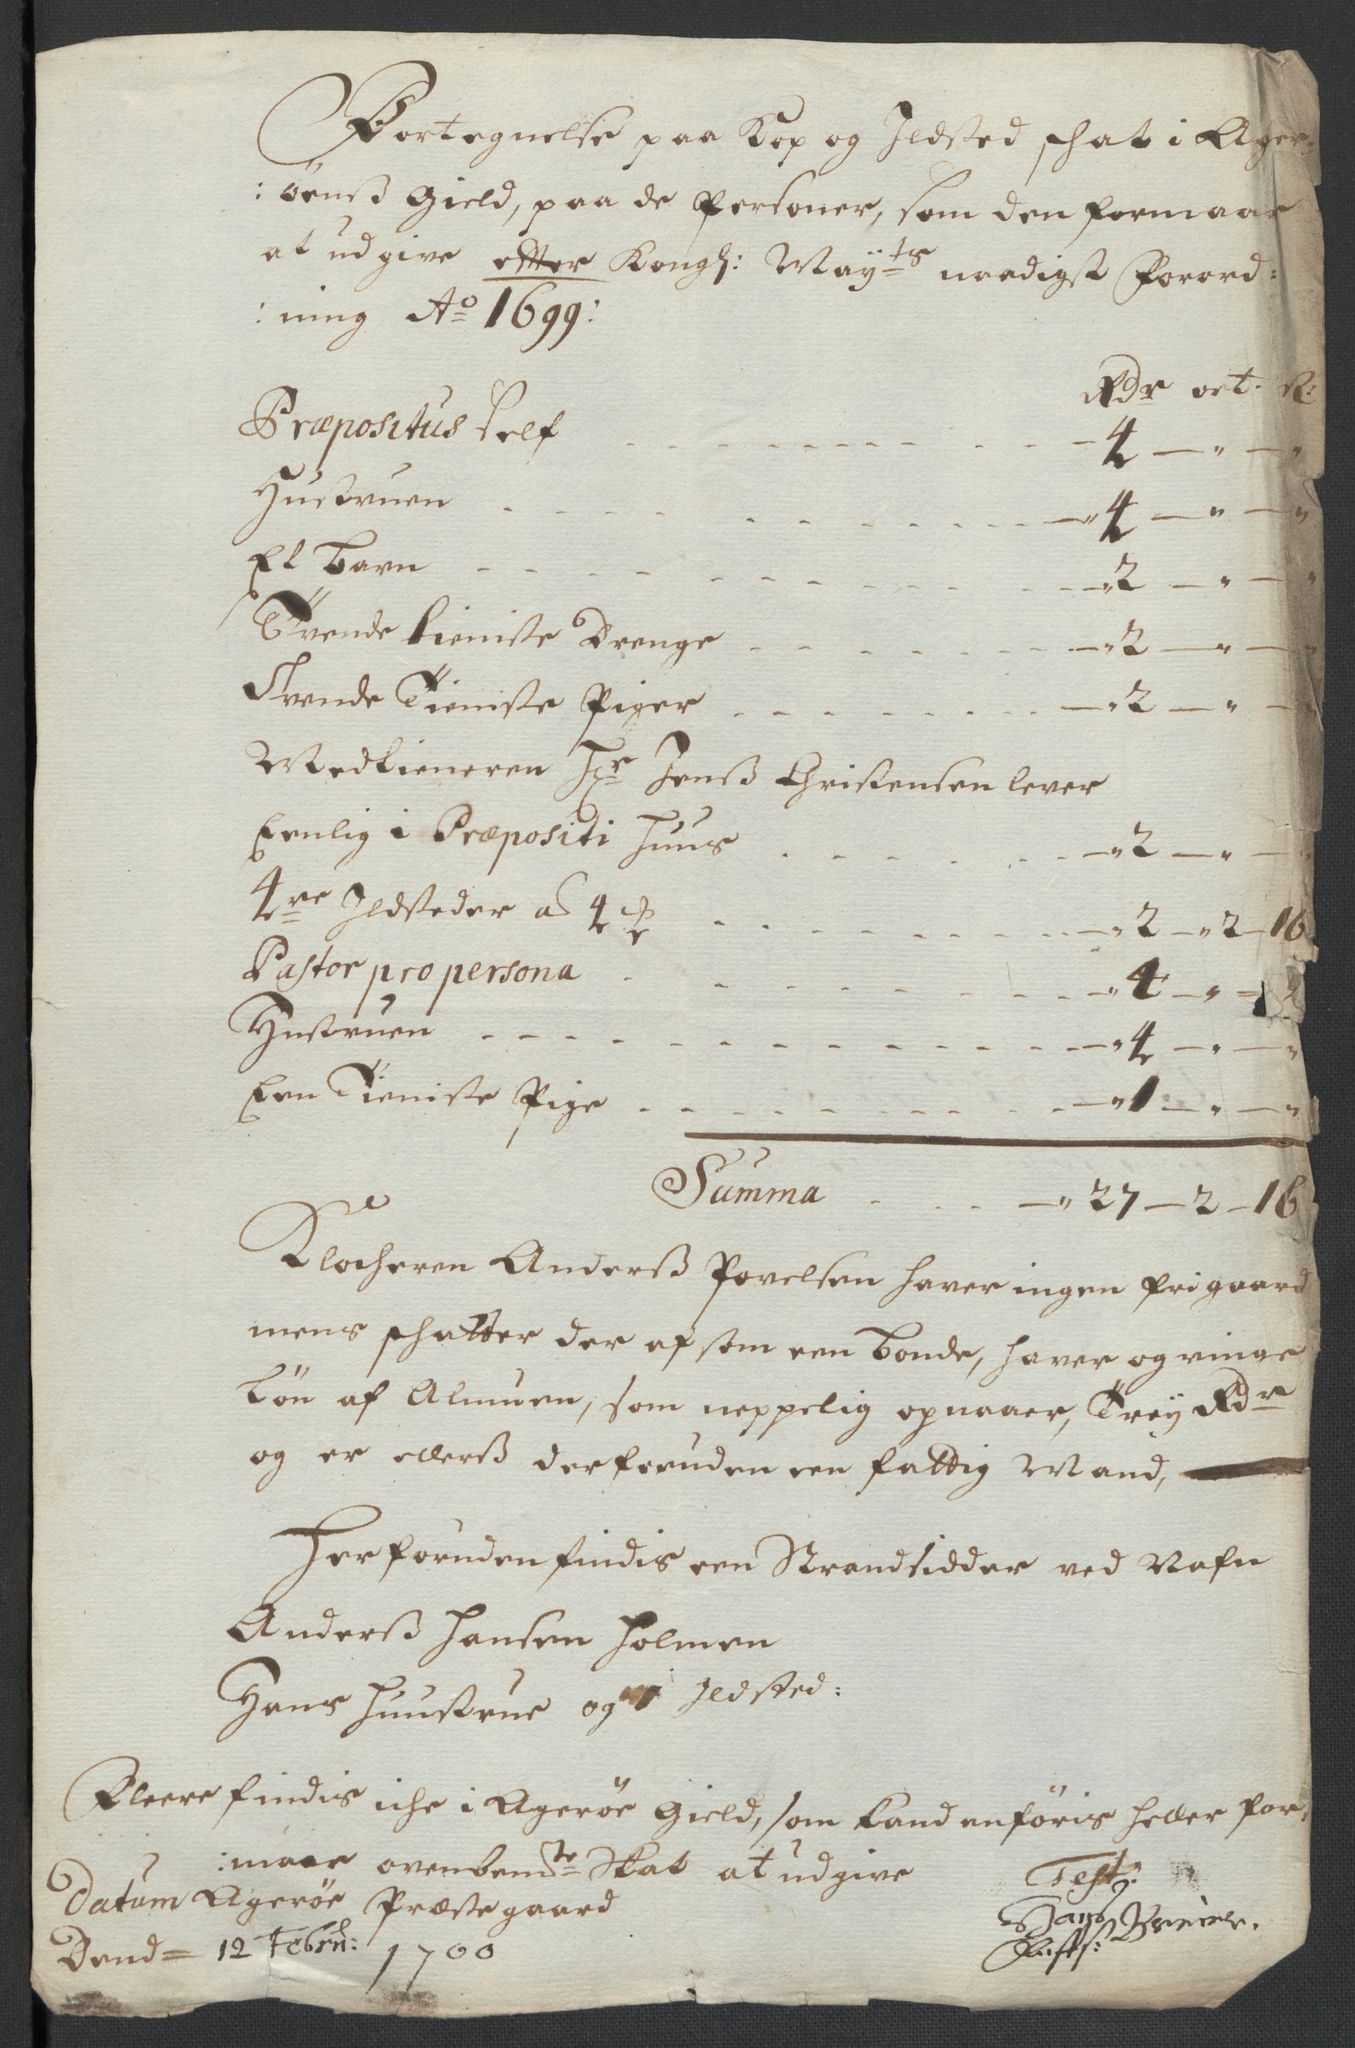 Fortegnelse paa Kop og Ildsted schat i Ager-
: öenß Gield, paa de Personer, som den formaar
at udgive efter Kongl: Mayts naadigst Forord:
: ning Ao 1699:
Rdr ort. ß:
Præpositus self - 4 - " - "
Hustruen - 4 - " - "
Et barn - 2 - " - "
Tvende tieniste Drenge - 2 - " - "
Tvende Tieniste Piger - 2 - " - "
Medtieneren Hr Jenß Christensen lever
Eenlig i Præpositi Huus - 2 - " - "
4re Ildsteder a 4 - 2 - 2 - 16
Pastor pro persona - 4 - " -
Hustruen - 4 - " - "
Een Tieniste Pige - 1 - " - "
Summa - 27 - 2 - 16
Klocheren Anderß Povelsen haver ingen frigaard
mens schatter der af som een bonde, haver og ringe
lön af Almuen, som neppelig opnaaer, Trey Rdr
og er ellerß derforuden een fattig Mand,
Herforuden findis een Strandsidder ved Nafn
Anderß Hansen Holmen
Hans Huustrue og 1 Ildsted:
Fleere findis iche i Ageröe Gield, som kand anföris heller for,
:maae ovenbemte Skat at udgive
Datum Ageröe Præstegaard
Dend= 12 Febru: 1700
Test:
Hans